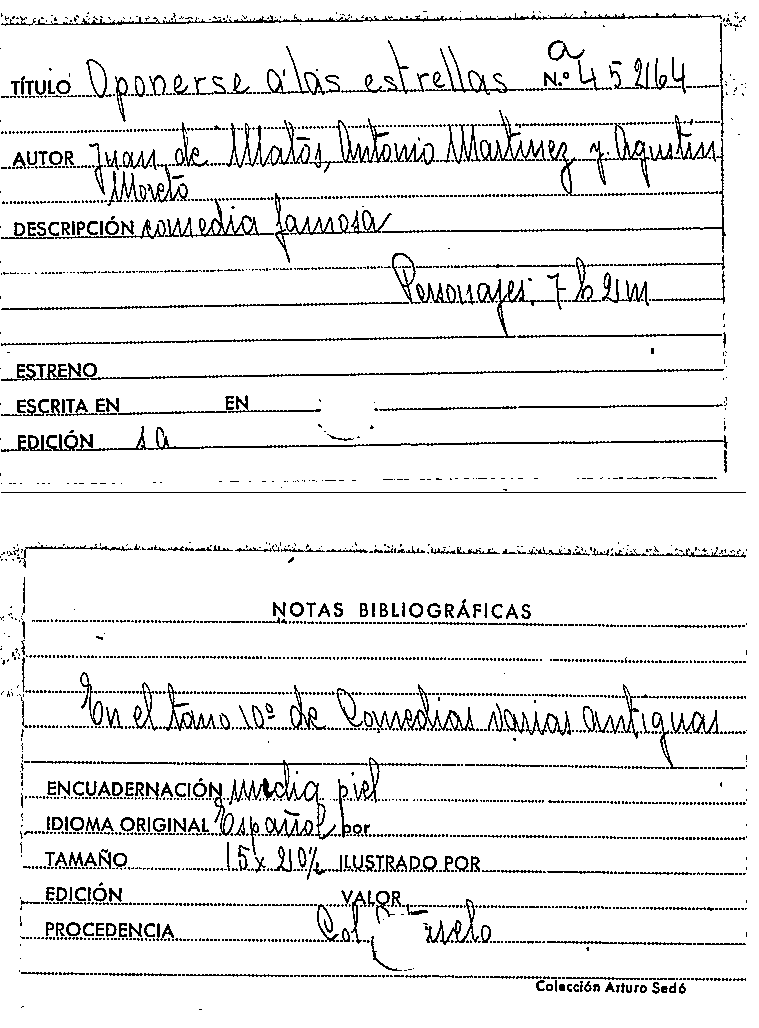 a
TÍTULO Oponerse a las estrellas N.º 452164
AUTOR Juan de Matos, Antonio Martinez y Agustín
Moreto
DESCRIPCIÓN comedia famosa
Personajes: 7 h 2 m
ESTRENO
ESCRITA EN EN
EDICIÓN s a
NOTAS BIBLIOGRÁFICAS
En el tomo 10º de Comedias varias antiguas
ENCUADERNACIÓN media piel
IDIOMA ORIGINAL Español por
TAMAÑO 15 x 20 ½ ILUSTRADO POR
EDICIÓN VALOR
PROCEDENCIA Col
Colección Arturo Sedó